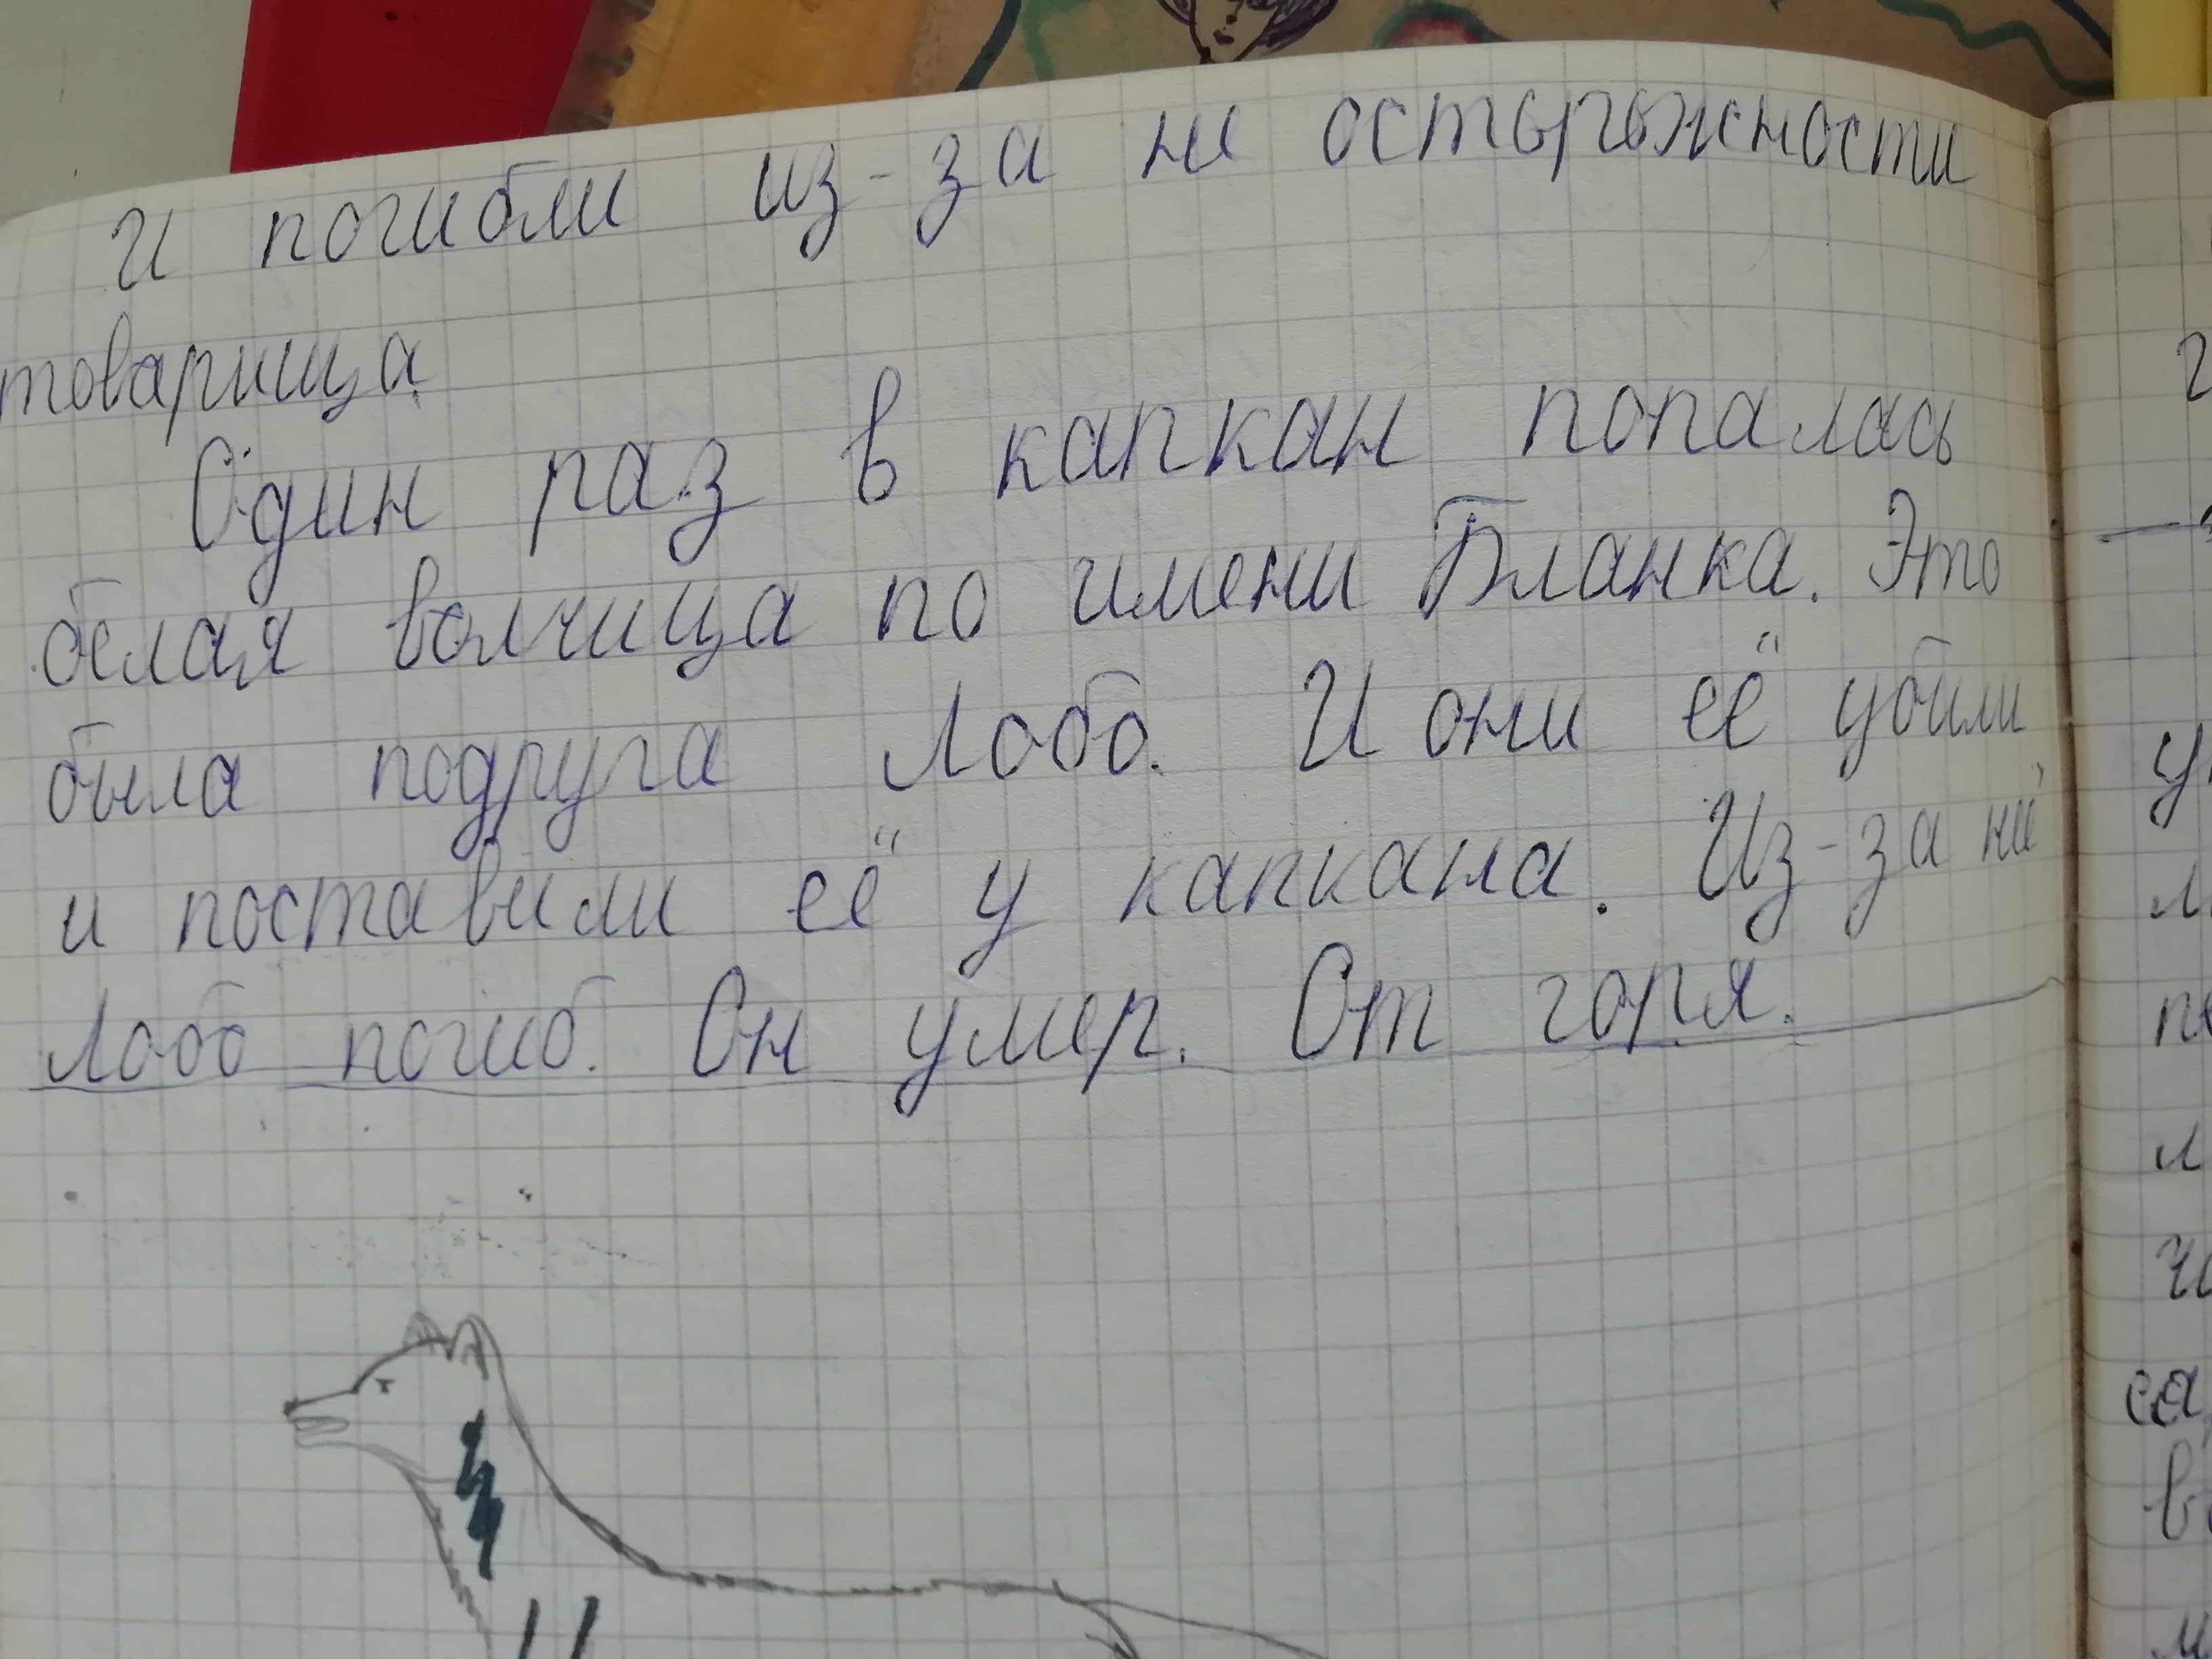 И погибли из-за не остырожности
товарища
Один раз в капкан попалась
белая волчица по имени Бланка. Это
была подруга Лобо. И они её убили
и поставили её у капкана. Из-за
Лобо погиб. Он умер. От горя.